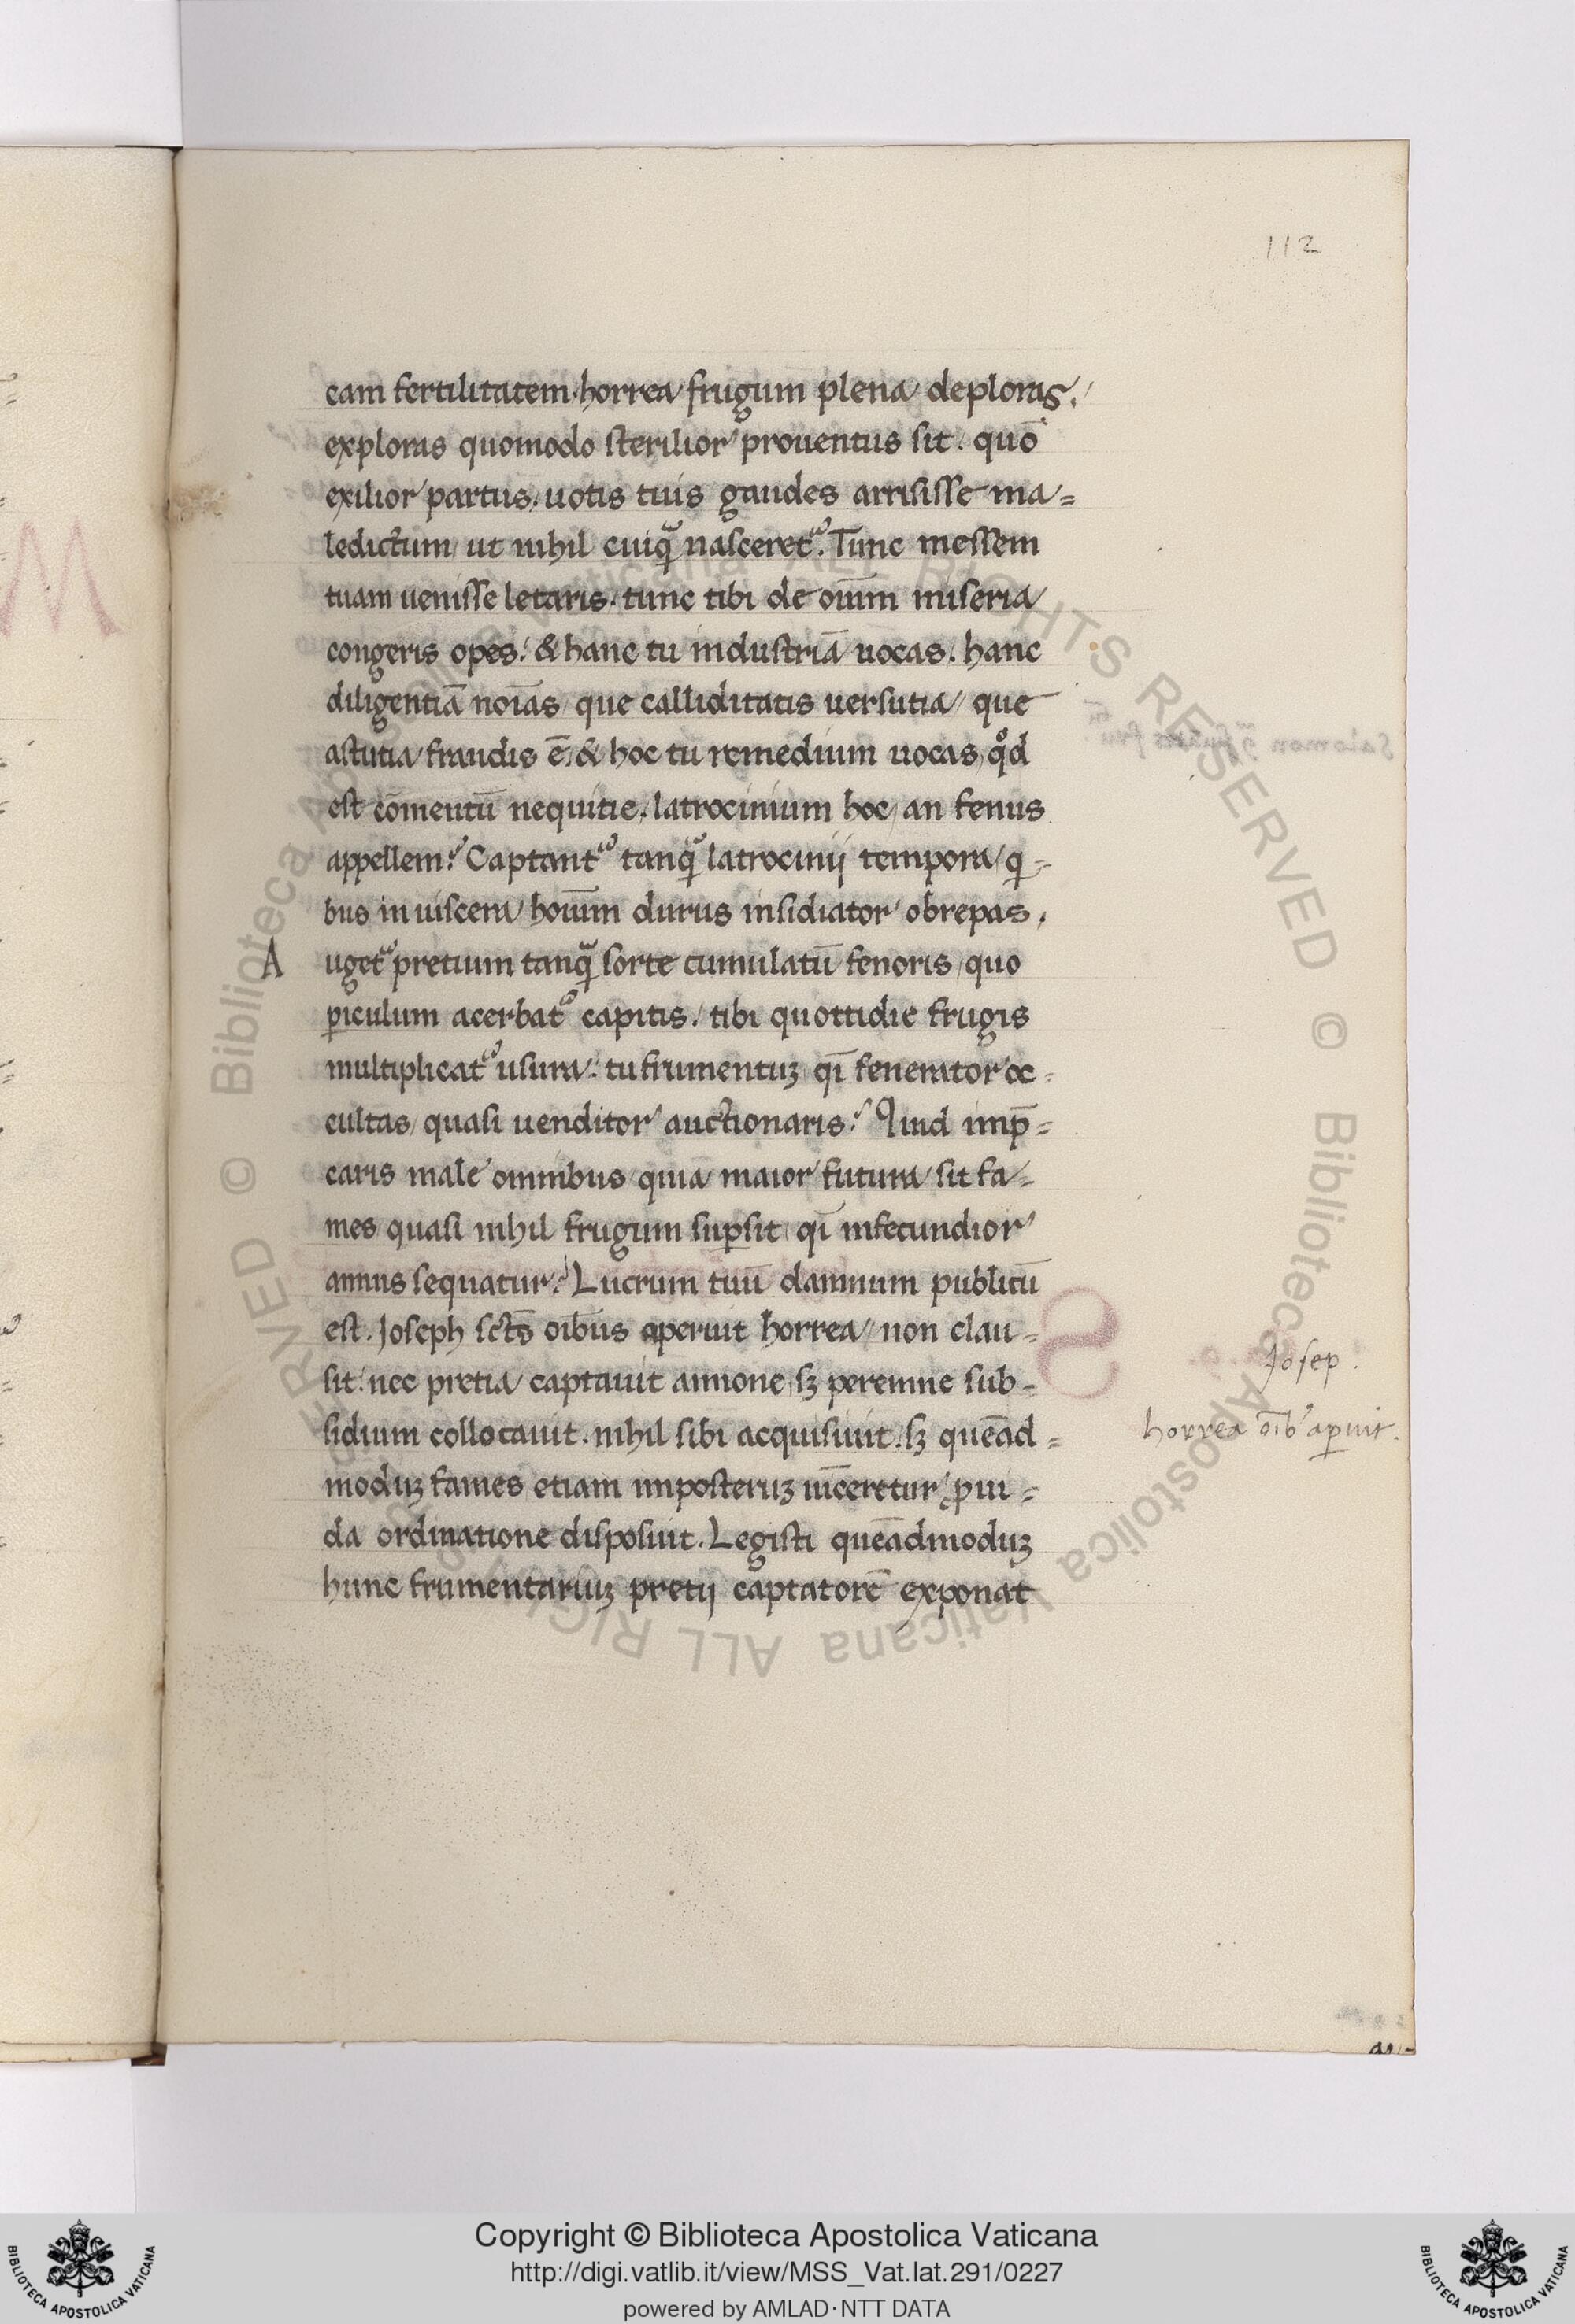 112
cam fertilitatem. horrea frugum plena deploras.
exploras quomodo sterilior prouentus sit. quō
exilior partus. uotis tuis gaudes arrisisse ma=
ledictum ut nihil cuiqᷓ nasceret᷑. Tunc messem
tuam uenisse letaris. tunc tibi de oīum miseria
congeris opes. & hanc tu industriā uocas. hanc
diligentiā noīas que calliditatis uersutia que
astutia fraudis ē. & hoc tu remedium uocas qͦd
est cōmentū nequitie. latrocinium hoc an fenus
appellem? Captant᷑ tanqᷓ latrocinij tempora q=
bus in uiscera hoīum durus insidiator obrepas.
A uget᷑ pretium tanqᷓ sorte cumulatū fenoris quo
ꝑiculum acerbat᷑ capitis. tibi quottidie frugis
multiplicat᷑ usura. tu frumentuꝫ qī fenerator oc=
cultas quasi uenditor auctionaris? Quid imp̄=
caris male omnibus quia maior futura sit fa=
mes quasi nihil frugum suꝑsit qī infecundior
annus sequatur? Lucrum tuū damnum publicū
est. Joseph sctō oībus aperuit horrea non clau=
sit. nec pretia captauit annone sꝫ perenne sub=
sidium collocauit. nihil sibi acquisiuit. sꝫ queād=
moduꝫ fames etiam imposteruꝫ uīceretur ꝓui=
da ordinatione disposuit. Legisti queādmoduꝫ
hunc frumentariuꝫ pretij captatorē exponat
Josep.
horrea oīb' aꝑuit.
Copyright © Biblioteca Apostolica Vaticana
http://digi.vatlib.it/view/MSS_Vat.lat.291/0227
powered by AMLAD·NTT DATA
BIBLIOTECA APOSTOLICA VATICANA
BIBLIOTECA APOSTOLICA VATICANA
© Biblioteca Apostolica Vaticana ALL RIGHTS RESERVED © Biblioteca Apostolica Vaticana ALL RIGHTS RESERVED